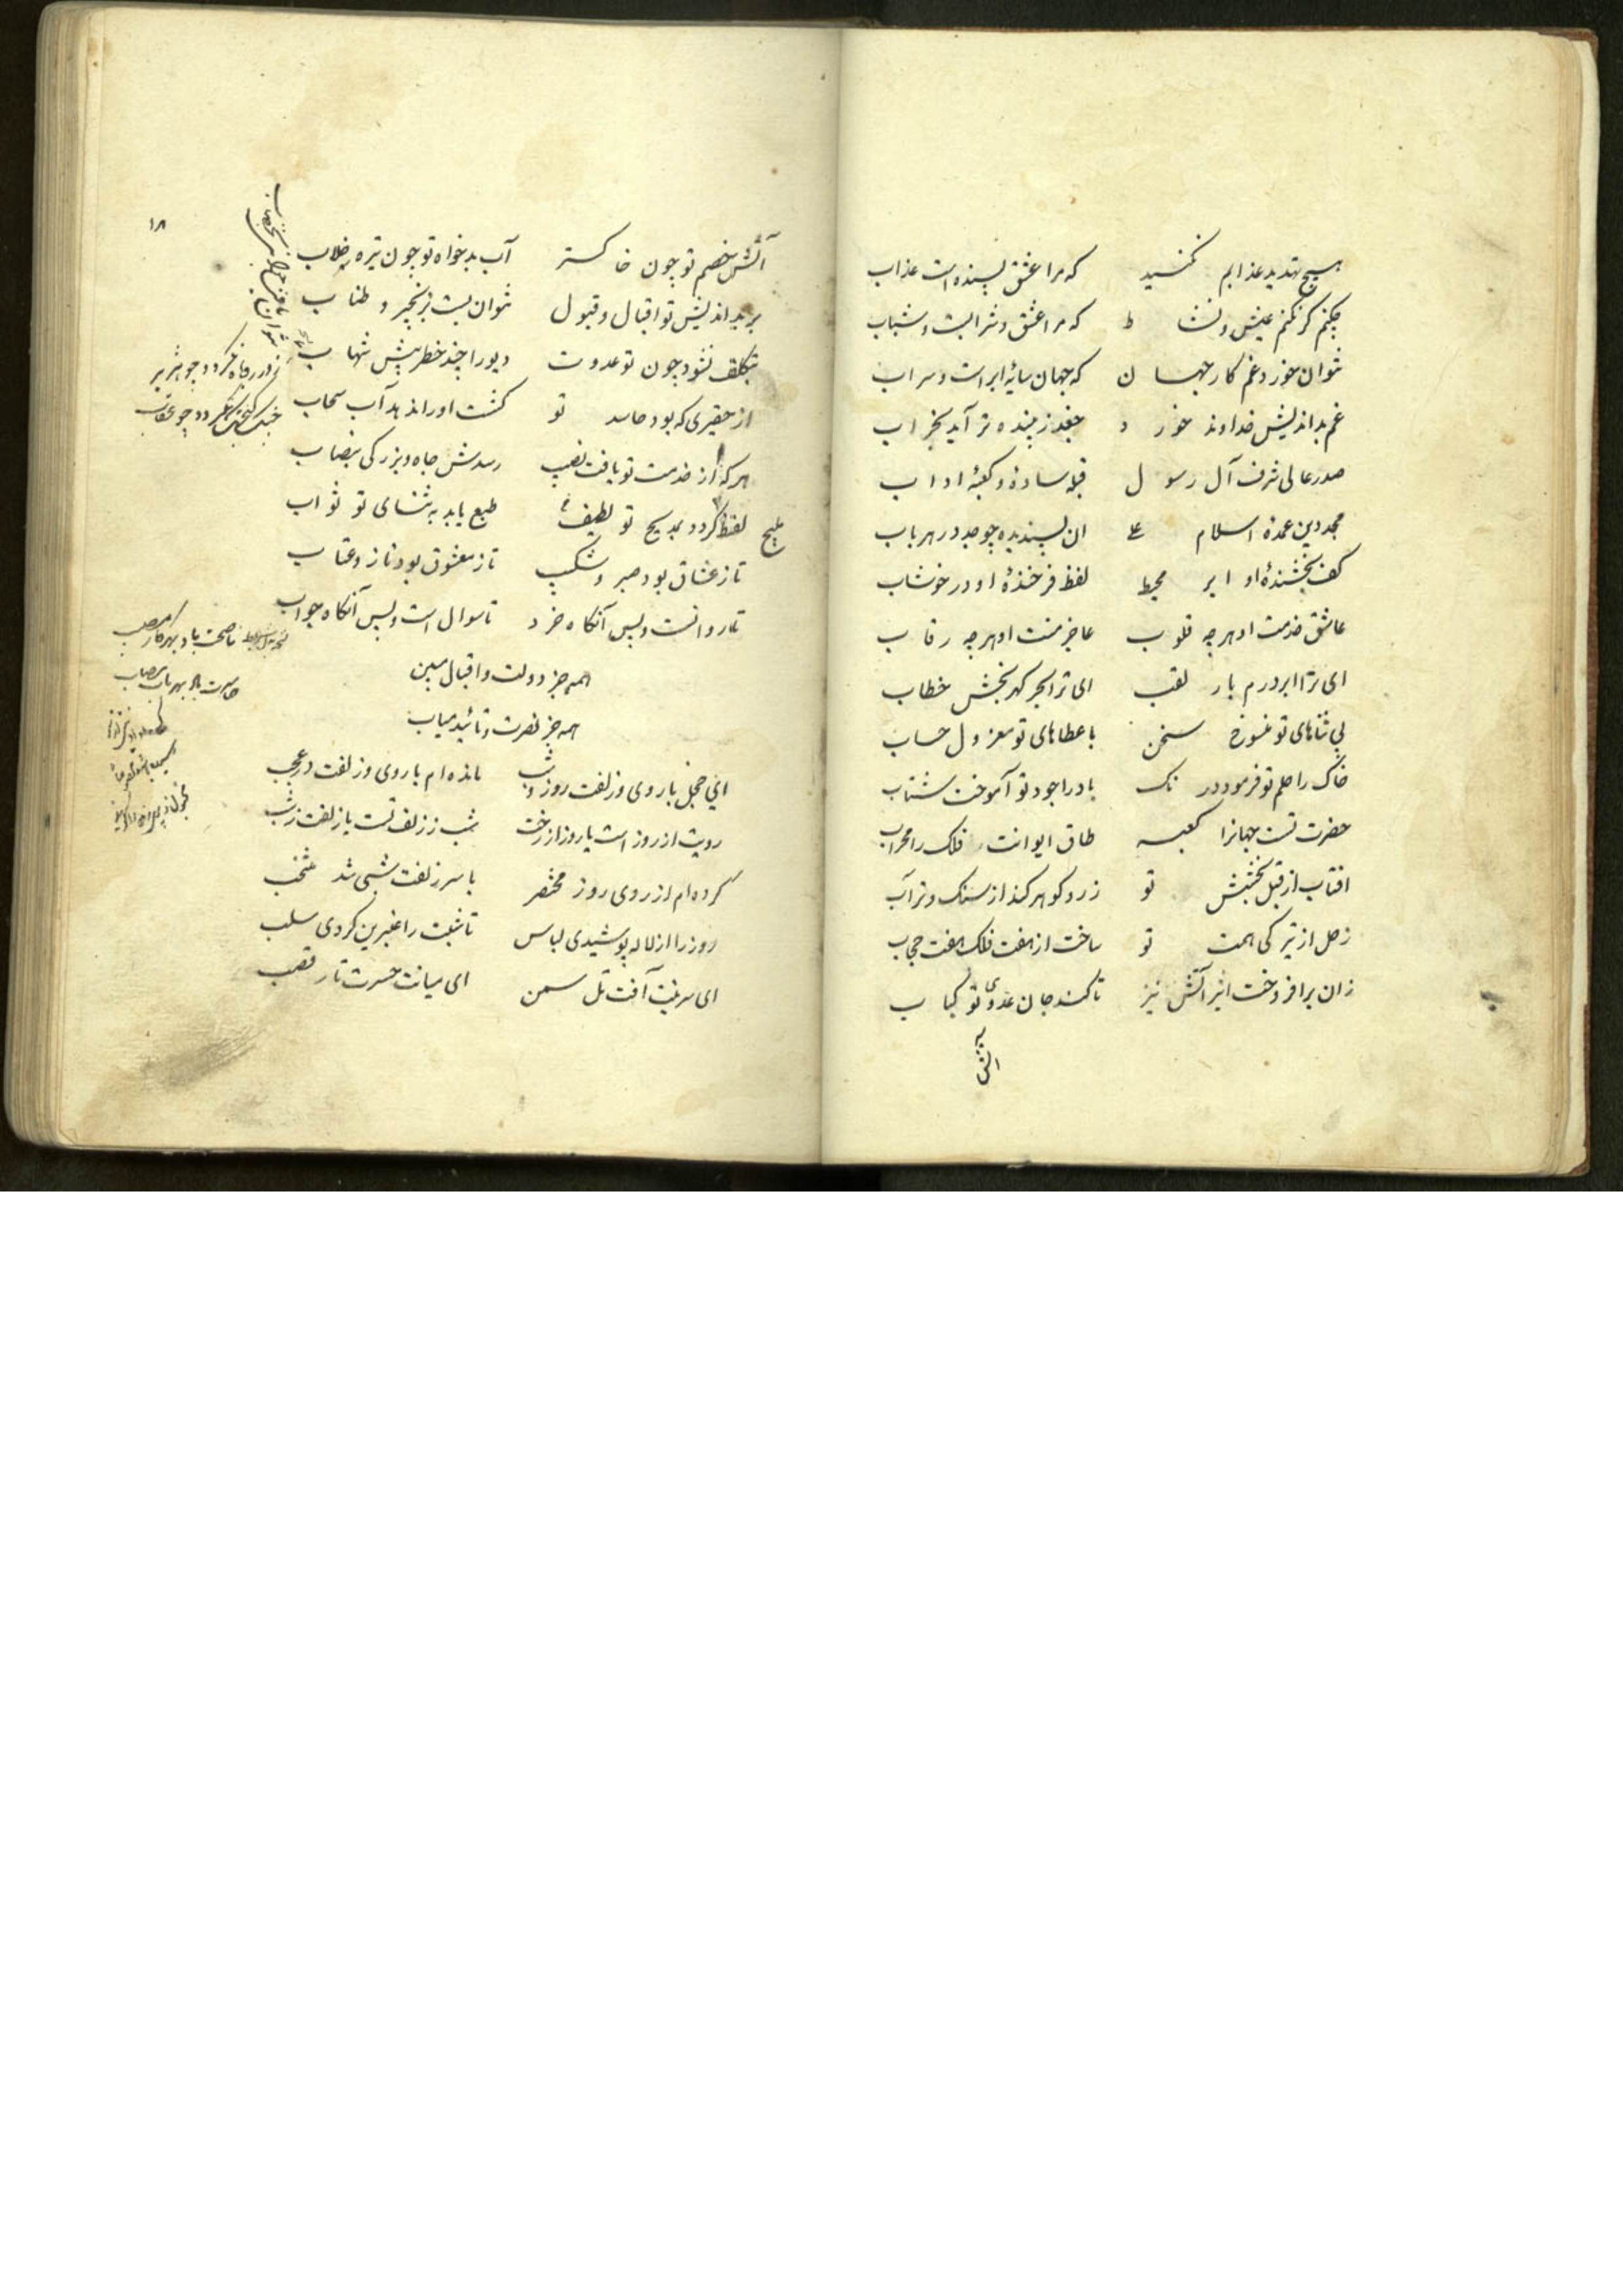 هیچ تهدید عذابم نکنید که مرا عشق بسنده است عذاب
چکنم گر نکنم عیش و نشاط که مرا عشق و شرابست و شباب
نتوان خورد غم کار جهان که جهان سایهٔ ابر است و سراب
غم بداندیش خداوند خورد جغد زیبنده تر آید بخراب
صدر عالی شرف آل رسول قبله سادهٔ و کعبهٔ اداب
مجد دین عمدهٔ اسلام علی ان پسندیده چو جد در هر باب
کف بخشندهٔ او ابر محیط لفظ فرخندهٔ او در خوشاب
عاشق خدمت او هرچه قلوب عاجز منت او هرچه رقاب
ای ترا ابر درم بار لقب ای ترا بحر کهر بخش خطاب
بی ثناهای تو منسوخ سخن با عطاهای تو معزول حساب
خاک را حلم تو فرمود درنک باد را جود تو آموخت شتاب
حضرت تست جهانرا کعبه طاق ایوانت فلک را محراب
افتاب از قبل بخشش تو زر و کوهر کند از سنک و تراب
زحل از تیرکی همت تو ساخت از هفت فلک هفت حجاب
زان برافروخت اثیر آتش نیز تا کند جان عدوی تو کباب
آتش
آتش خصم تو چون خاکستر آب بدخواه تو چون تیره خلاب
بر بداندیش تو اقبال و قبول نتوان بست بزنجیر و طناب
بتکلف نشود چون تو عدوت دیو را چند خطر پیش شهاب
از حقیری که بود حاسد تو کشت او را ندهد آب سحاب
هر که از خدمت تو یافت نصیب رسدش جاه و بزرکی بنصاب
لفظ کردد بمدیح تو لطیف طبع یابد به ثنای تو ثواب
ملیح
تا ز عشاق بود صبر و شکیب تا ز معشوق بود ناز و عتاب
تا روانست و پس آنکاه خرد تا سوال است و پس آنکاه جواب
همه جز دولت و اقبال مبین
همه جز نصرت و تأئید میاب
ای خجل با روی و زلفت روز و شب مانده ام با روی و زلفت در عجب
رویت از روز است یا روز از رخت شب ز زلف تست یا زلفت ز شب
کرده ام از روی روز مختصر با سر زلفت شبی شد منتخب
روز را از لاله پوشیدی لباس تا شبت را عنبرین کردی سلب
ای سرینت آفت تل سمن ای میانت حسرت تار قصب
۱۸
ناصحت باد بهر کار مصیب
حاسدت باد بهر باب مصاب